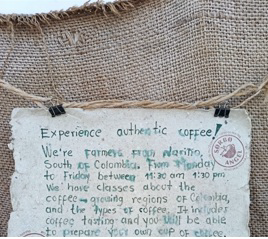 Experience authentic coffee!
We're farmers from Nariño,
South of Colombia. From Monday
to Friday between 11:30 am 1:30 pm
We have classes about the
coffee-growing regions of Colombia,
and the types of coffee. It includes
coffee tasting and you will be able
to prepare your own cup of coffee.